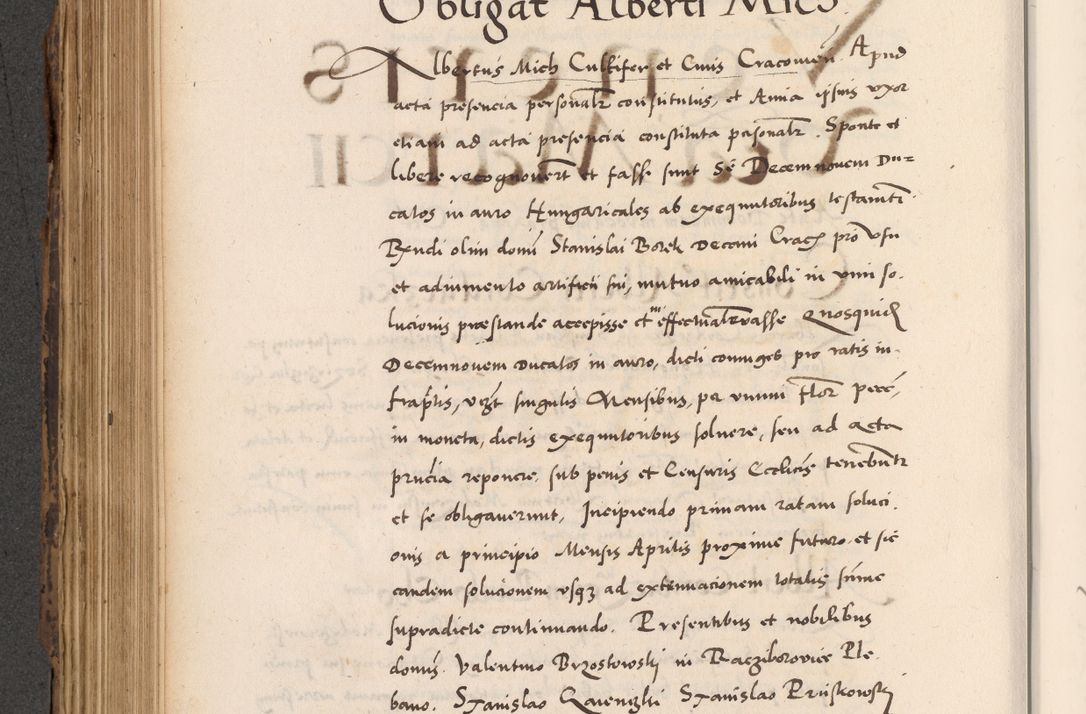 Obligat Alberti Mich
Albertus Mich Cultifer et Civis Cracovien. Apud
acta presencia personalr constitutus, et Anna ipsius uxor
etiam ad acta presencia constituta pasonalr. Sponte et
libere recognovert et fassi sunt Se Decemnovem Du=
catos in auro Hungaricales ab exequutoribus testamti
Rndi olim domi Stanislai Borek Decani Crac pro usu
et adiumento artificii sui, mutuo amicabili in vim so-
lucionis prestande accepisse et effectualr Quosquid
Decemnovem Ducatos in auro, dicti coniuges pro ratis in-
fraptis, vczt singulis Mensibus, per unum flor pecc,
in moneta, dictis exequutoribus solvere, seu ad acta
pruicia reponere, sub penis et Censuris Ecclicis tenebuntr
et se obligaverunt, Incipiendo primam ratam soluci-
onis a principio Mensis Aprilis proxime futuro et sic
eandem solucionem usqz ad extenuacionem totalis sume
supradicte continuando. Presentibus et nobilibus
domis. Valentino Brzostowski in Racziborovice Ple-
bano. Stanislao Stanislao